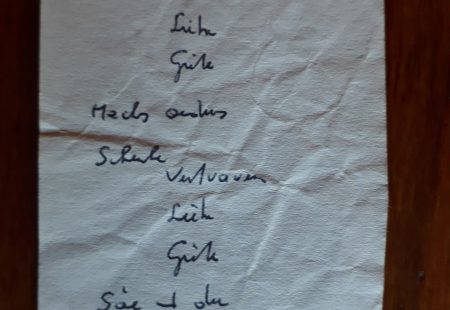 Liebe
Güte
Machs anders
Schenke
Vertrauen
Liebe
Güte
Säe
du